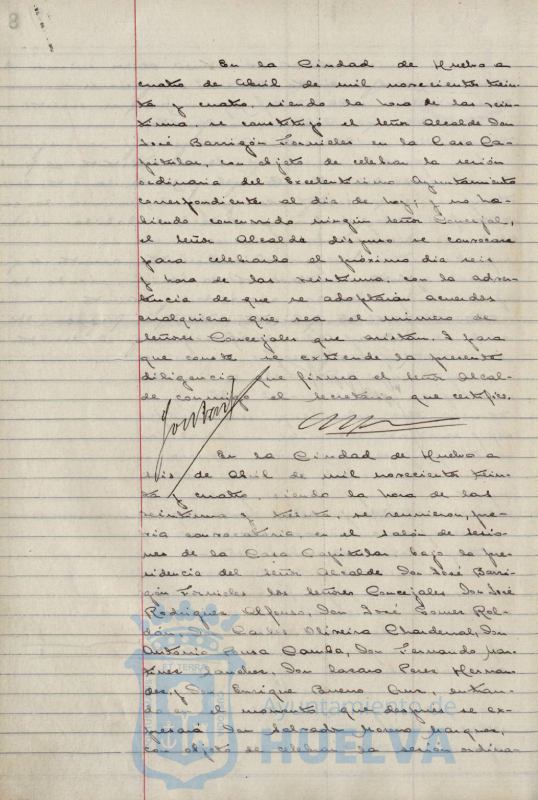 8
En la Ciudad de Huelva a
cuatro de Abril de mil novecientos trein-
ta y cuatro, siendo la hora de las vein-
tiuna, se constituyó el señor Alcalde Don
José Barrigón Fornieles en la Casa Ca-
pitular, con objeto de celebrar la sesión
ordinaria del Excelentísimo Ayuntamiento
correspondiente al día de hoy; y no ha-
biendo concurrido ningún señor Concejal,
el señor Alcalde dispuso se convocara
para celebrarla el próximo día seis
y hora de las veintiuna, con la adver-
tencia de que se adoptarán acuerdos
cualquiera que sea el número de
señores Concejales que asistan. Y para
que conste se extiende la presente
diligencia que firma el señor Alcal-
de conmigo el Secretario que certifico.
En la Ciudad de Huelva a
seis de Abril de mil novecientos trein-
ta y cuatro, siendo la hora de las
veintiuna y treinta, se reunieron, pre-
via convocatoria, en el salón de sesio-
nes de la Casa Capitular bajo la pre-
sidencia del señor Alcalde Don José Barri-
gón Fornieles los señores Concejales Don José
Rodríguez Alfonso, Don José Gomez Rol-
dán, Don Carlos Oliveira Chardenal, Don
Antonio Pousa Camba, Don Fernando Mar-
tínez Sánchez, Don Lazaro Perez Hernan-
dez, y Don Enrique Bueno Cruz, entran-
do en el momento que después se ex-
presará Don Salvador Moreno Marquez,
con objeto de celebrar la sesión ordina-
Ayuntamiento de
HUELVA